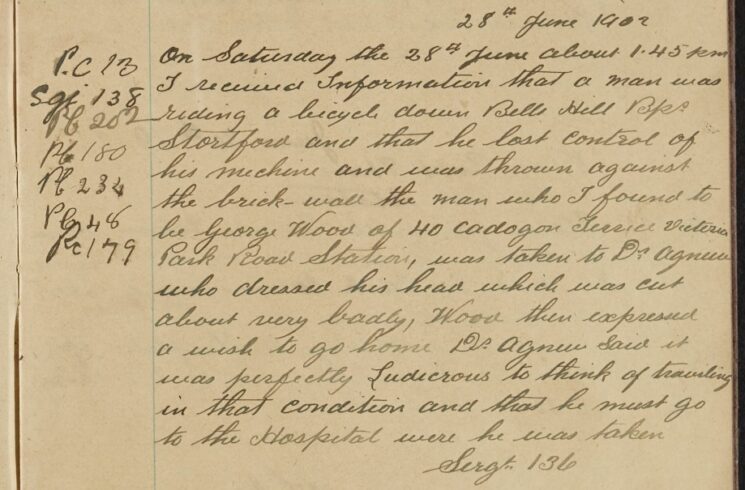 28th June 1902
P.C 13
Sgt. 138
PC 202
PC 180
PC 234
PC 48
PC 179
On Saturday the 28th June about 1.45 pm
I received Information that a man was
riding a bicycle down Bells Hill Bps
Stortford and that he lost control of
his mechine and was thrown against
the brick-wall the man who I found to
be George Wood of 40 Cadogon Terrice Victoria
Park Road Station, was taken to Dr. Agnew
who dressed his head which was cut
about very badly, Wood then expressed
a wish to go home Dr. Agnew said it
was perfectly Ludicrous to think of traveling
in that condition and that he must go
to the Hospital were he was taken
Sergt. 136